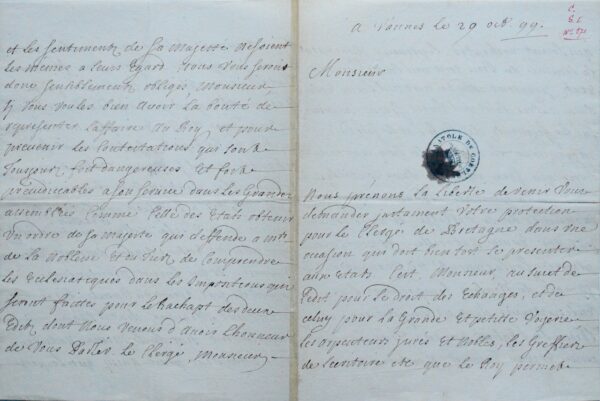 a Vannes le 29 oct 99.
Monsieur
Nous prenons la liberté de venir Vous
demander justament Votre protection
pour le Clergé de Bretagne dans une
ocasion qui doit bien tot se presenter
aux Etats C'est, Monsieur, au sujet de
l'edit pour le droit des Echanges, et de
celuy pour la Grande et petitte Voyerie
les experteurs jurés et Nobles, les Greffiers
de l'ecritoire etc que le Roy permet
et les sentiments de sa majesté ne soient
les memes a leurs Egard Nous Vous serons
donc sensiblement obligés, Monsieur
sy Vous voules bien avoir la bonté de
representer l'affaire au Roy, et pour
prevenir les Contestations qui sont
Toujours fort dangereuses et fort
prejudiciables a son service dans les Grandes
assemblées comme celle des Etats obtenir
Un ordre de sa majesté qui deffende a
de la Noblesse et du de Comprendre
les Ecclesiastiques dans les Impositions qui
seront faittes pour le Rachapt des deux
Edits dont Nous venons d'avoir l'honneur
de Vous parler, le Clergé, Monsieur,